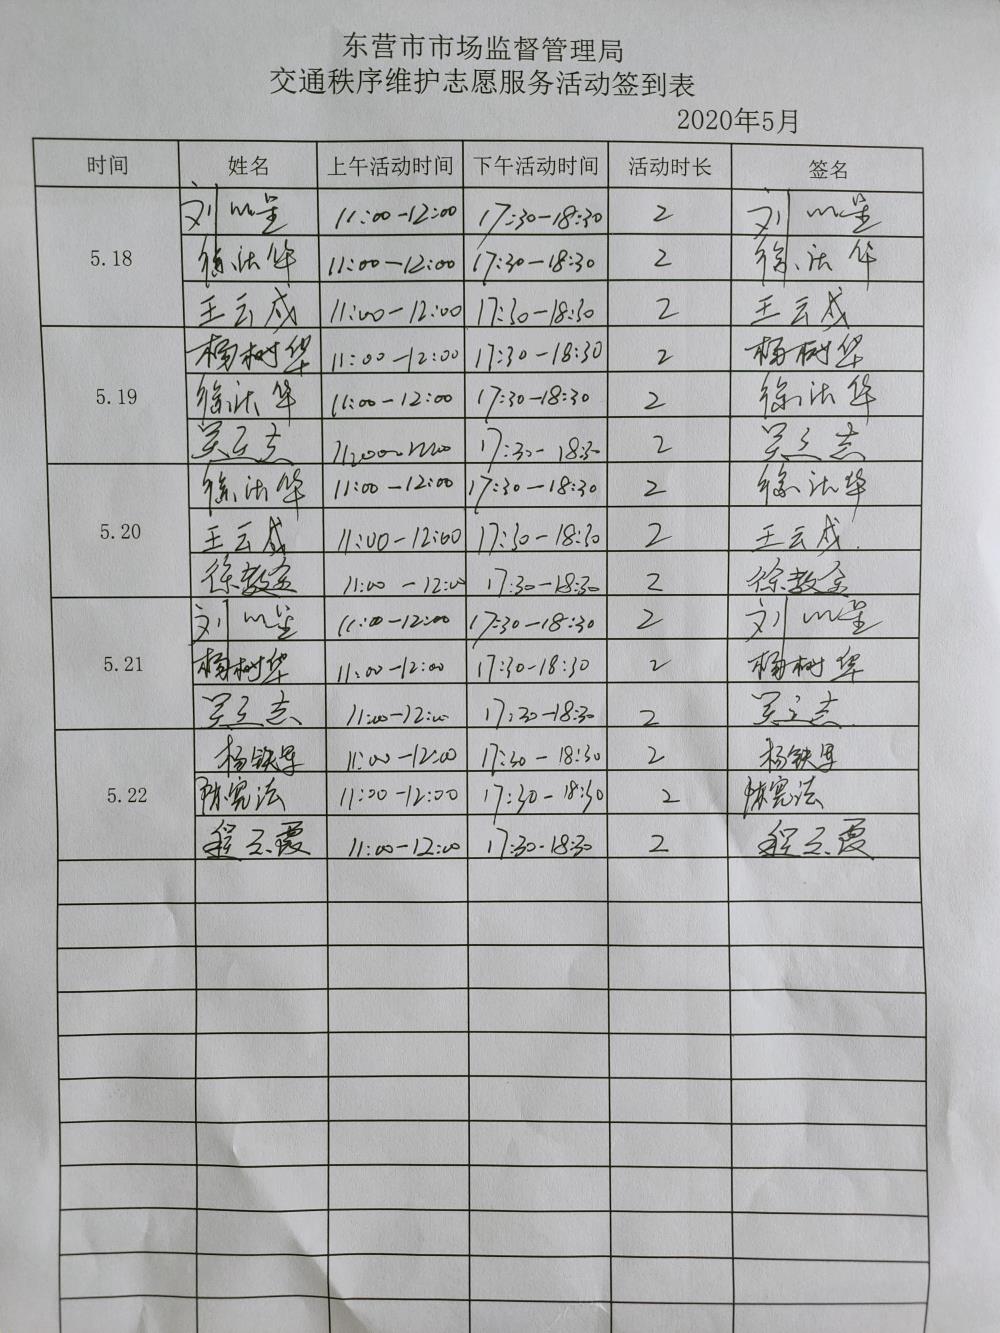 东营市市场监督管理局
交通秩序维护志愿服务活动签到表
2020年5月
时间 姓名 上午活动时间 下午活动时间 活动时长 签名
5.18
刘 11:00-12:00 17:30-18:30 2 刘
徐法华 11:00-12:00 17:30-18:30 2 徐法华
王云成 11:00-12:00 17:30-18:30 2 王云成
5.19
杨树华 11:00-12:00 17:30-18:30 2 杨树华
徐法华 11:00-12:00 17:30-18:30 2 徐法华
吴立志 17:30-18:30 2 吴立志
5.20
徐法华 11:00-12:00 17:30-18:30 2 徐法华
王云成 11:00-12:00 17:30-18:30 2 王云成.
徐教金 11:00-12:00 17:30-18:30 2 徐教金
5.21
刘 11:00-12:00 17:30-18:30 2 刘
杨树华 11:00-12:00 17:30-18:30 2 杨树华
吴立志 11:00-12:00 17:30-18:30 2 吴立志.
5.22
杨铁军 11:00-12:00 17:30-18:30 2 杨铁军
陈宪法 11:00-12:00 17:30-18:30 2 陈宪法
程云霞 11:00-12:00 17:30-18:30 2 程云霞